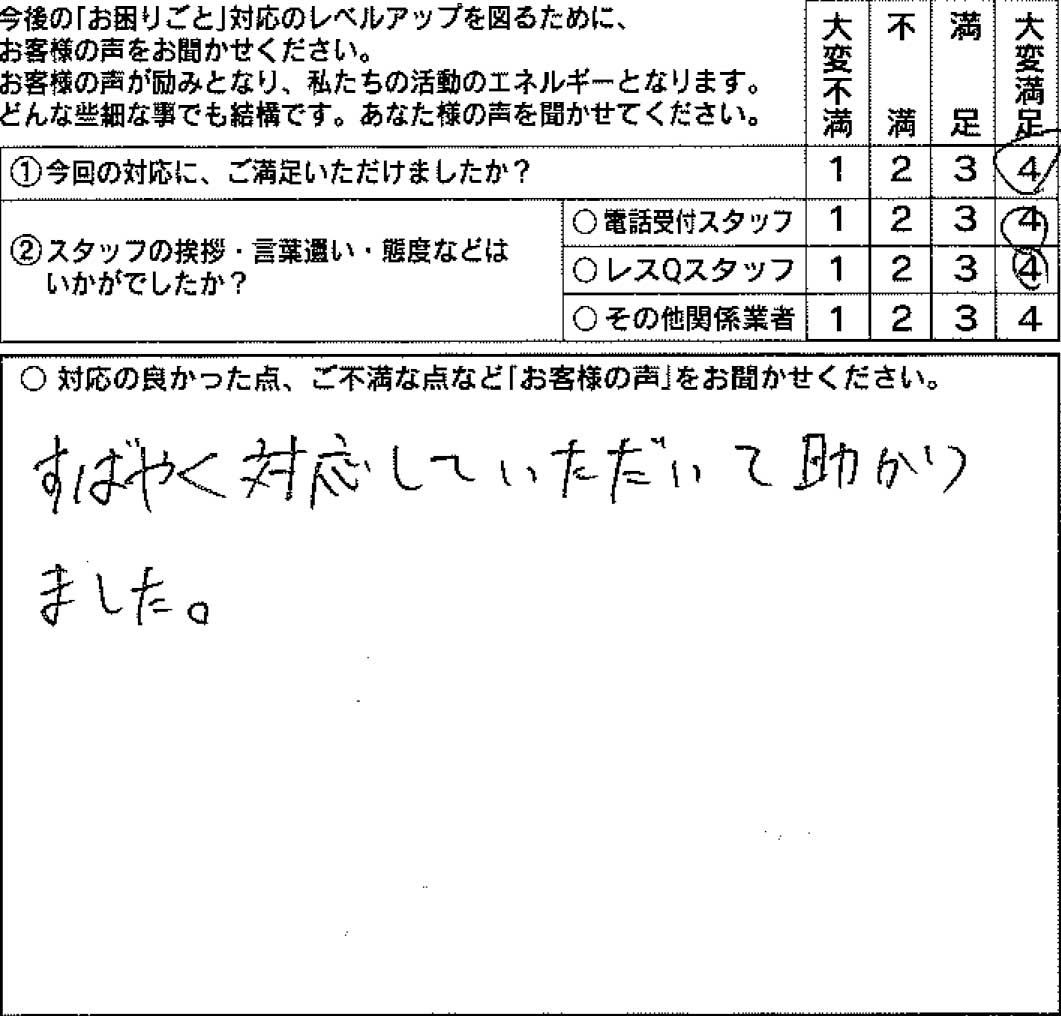 今後の「お困りごと」対応のレベルアップを図るために、
お客様の声をお聞かせください。
お客様の声が励みとなり、私たちの活動のエネルギーとなります。
どんな些細な事でも結構です。あなた様の声を聞かせてください。
大変不満 不満 満足 大変満足
①今回の対応に、ご満足いただけましたか? 1 2 3 4
②スタッフの挨拶・言葉遣い・態度などは
いかがでしたか?
○電話受付スタッフ 1 2 3 4
○レスQスタッフ 1 2 3 4
○その他関係業者 1 2 3 4
○ 対応の良かった点、ご不満な点など「お客様の声」をお聞かせください。
すばやく対応していただいて助かり
ました。